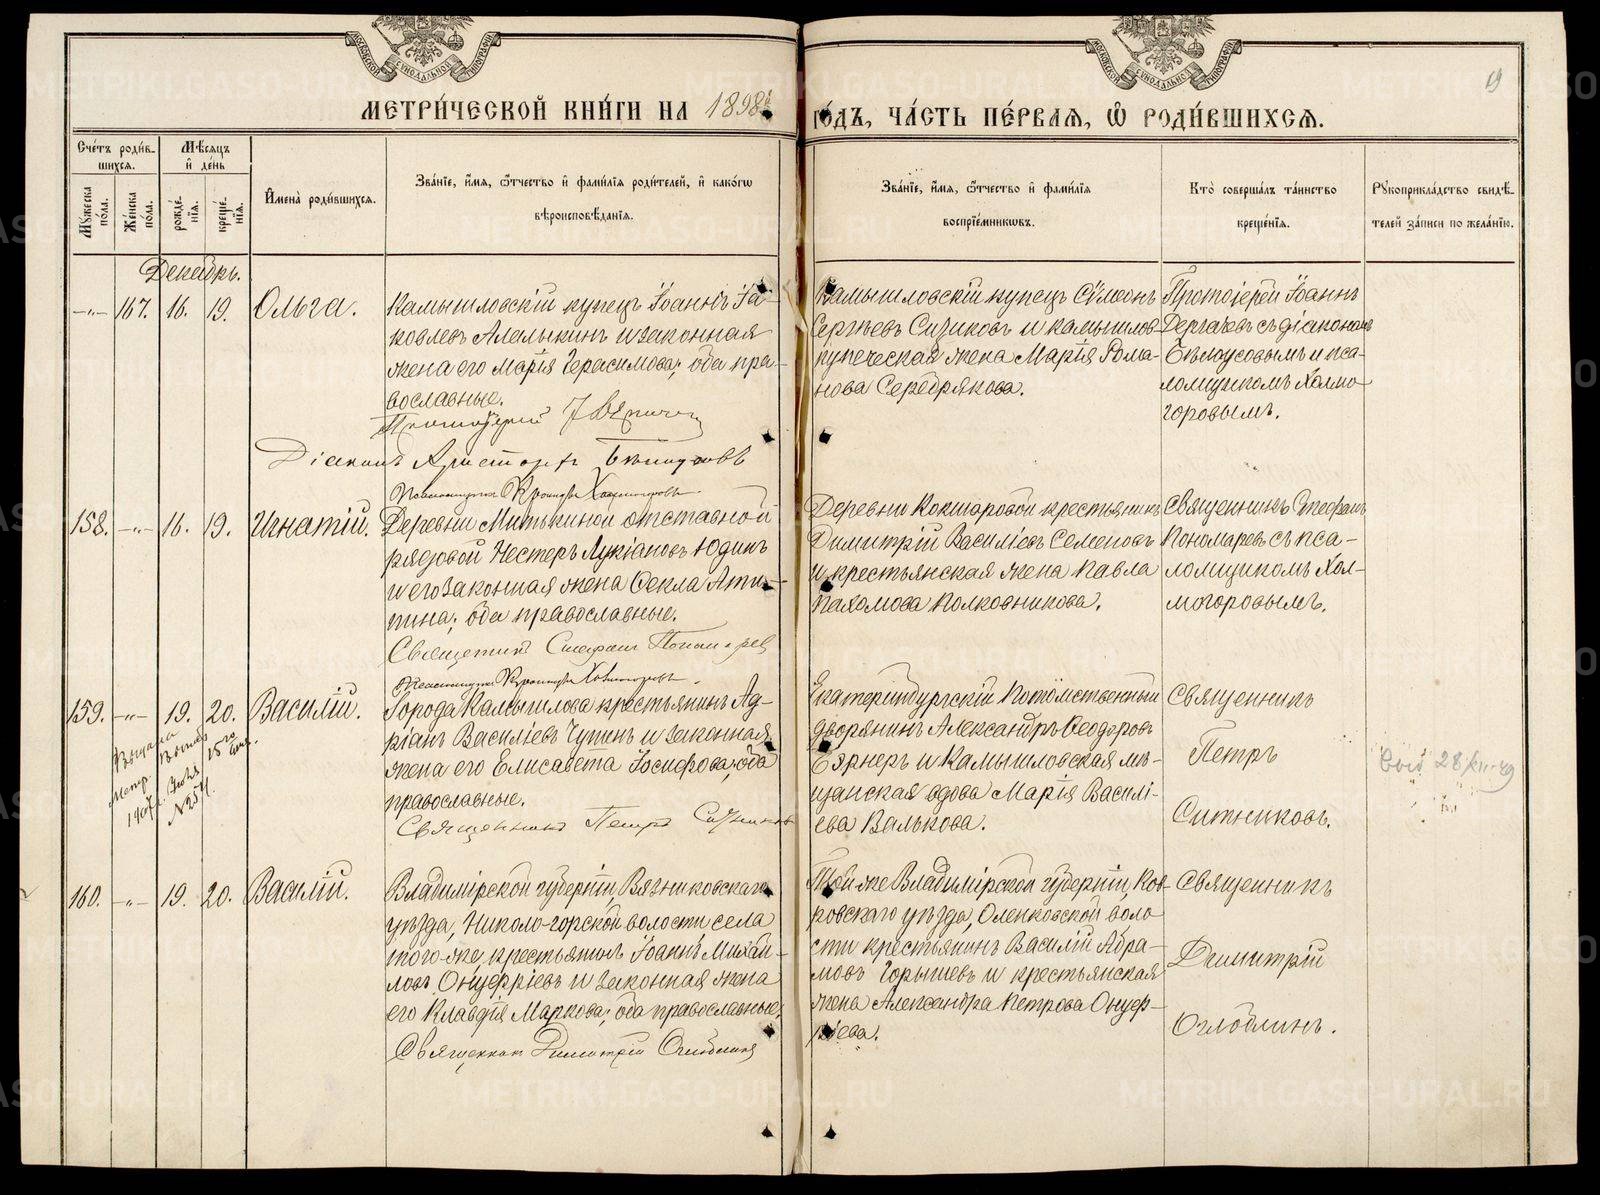 МОСКОВСКОЙ СѴНОДАЛЬНОЙ ТИПОГРАФІИ
МОСКОВСКОЙ СѴНОДАЛЬНОЙ ТИПОГРАФІИ
МЕТРИ́ЧЕСКОЙ КНИ́ГИ НА 1898й
ГО́ДЪ, ЧА́СТЬ ПЕ́РВАЯ, Ѡ҆ РОДИ́ВШИХСЯ.
Сче́тъ роди́в-
шихся.
Мѣ́сяцъ
и҆ де́нь
Мꙋ́жеска
по́ла.
Же́нска
по́ла.
рожде́-
нїя.
креще́-
нїя.
И҆мена̀ роди́вшихся.
Зва́нїе, и҆́мя, ѻ҆́тчество и҆ фами́лїя роди́телей, и҆ како́гѡ
вѣроисповѣ́данїя.
Зва́нїе, и҆́мя, ѻ҆́тчество и҆ фами́лїя
воспрїе́мникѡвъ.
Кто̀ соверша́лъ та́инство
креще́нїя.
Рꙋкоприкла́дство свидѣ́-
телей за́писи по жела́нїю.
Декабрь.
—„— 167. 16. 19. Ольга.
Камышловскій купецъ Іоаннъ Іа-
ковлевъ Алалыкинъ и законная
жена его Марія Герасимова; оба пра-
вославные.
Протоіерей
Діаконъ Аристархъ Бѣлоусовъ
Псаломщикъ Холмогоровъ.
Камышловскій купецъ Сѵмеонъ
Сергѣевъ Сизиковъ и камышлов.
купеческая жена Марія Рома-
нова Серебрякова.
Протоіерей Іоаннъ
Дергачевъ съ діакономъ
Бѣлоусовымъ и пса-
ломщикомъ Холмо-
горовымъ.
158. —„— 16. 19. Игнатій.
Деревни Митькиной отставной
рядовой Нестеръ Лукіановъ Юдинъ
и его законная жена Ѳекла Анти-
пина; оба православные.
Священникъ Стефанъ Пономаревъ
Псаломщикъ Холмогоровъ.
Деревни Кокшаровой крестьянинъ
Димитрій Василіевъ Семеновъ
и крестьянская жена Павла
Пахомова Полковникова.
Священникъ Стефанъ
Пономаревъ съ пса-
ломщикомъ Хол-
могоровымъ.
159. —„— 19. 20. Василій.
Города Камышлова крестьянинъ Ад-
ріанъ Василіевъ Чупинъ и законная
жена его Елисавета Іосифова; оба
православные.
Священникъ Петръ Ситниковъ
Екатеринбургскій потомственный
дворянинъ Александръ Ѳеодоровъ
Бэрнеръ и Камышловская мѣ-
щанская вдова Марія Василі-
ева Валькова.
Священникъ
Петръ
Ситниковъ.
Выдана
Метр. Выпис
1907 г. 15го
№ 254.
28/XII-49
160. —„— 19. 20. Василій.
Владимірской губерніи, Вязниковскаго
уѣзда, Николо-горской волости села
того-же крестьянинъ Іоаннъ Михаи-
ловъ Онуфріевъ и законная жена
его Клавдія Маркова; оба православные.
Священникъ Димитрій Оглоблинъ
Той же Владимірской губерніи, Ков-
ровскаго уѣзда, Оленковской воло-
сти крестьянинъ Василій Абра-
мовъ Горышевъ и крестьянская
жена Александра Петрова Онуф-
ріева.
Священникъ
Димитрій
Оглоблинъ.
METRIKI.GASO-URAL.RU